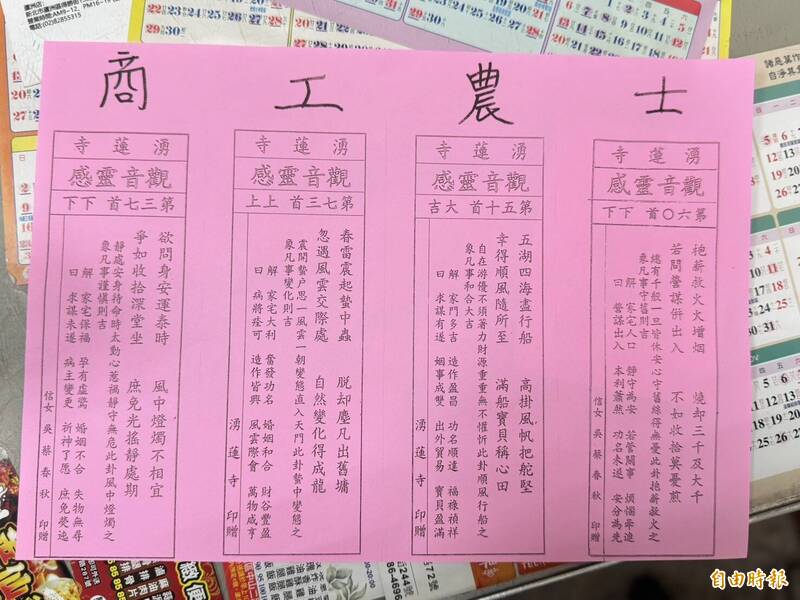 士
湧蓮寺
觀音靈感
第六〇首 下下
抱薪救火火增烟 燒却三千及大千
若問營謀併出入 不如收拾莫憂煎
總有千般一旦皆休安心守舊終得無憂此卦抱薪救火之
象凡事守舊則吉
解 家宅人口 靜守為安 若管閑事 煩惱牽迫
曰 營謀出入 本利蕭然 功名未遂 安分為先
信女 吳蔡春秋 印贈
農
湧蓮寺
觀音靈感
第五十首 大吉
五湖四海盡行船 高掛風帆把舵堅
幸得順風隨所至 滿船寶貝稱心田
自在游優不須著力財源重重無不懽忻此卦順風行船之
象凡事和合大吉
解 家門多吉 造作盈昌 功名順達 福祿禎祥
曰 求謀有遂 姻事成雙 出外貿易 寶貝盈滿
湧蓮寺 印贈
工
湧蓮寺
觀音靈感
第七三首 上上
春雷震起蟄中蟲 脫却塵凡出舊墉
忽遇風雲交際處 自然變化得成龍
震開蟄戶思一風雲一朝變態直入天門此卦蟄中變態之
象凡事變化則吉
解 家宅大利 奮發功名 婚姻和合 財谷豐盈
曰 病將痊可 造作皆興 風雲際會 萬物咸亨
湧蓮寺 印贈
商
湧蓮寺
觀音靈感
第三七首 下下
欲問身安運泰時 風中燈燭不相宜
爭如收拾深堂坐 庶免光搖靜處期
靜處安身待命時太動心惹禍靜守無危此卦風中燈燭之
象凡事謹慎則吉
解 家宅保福 孕有虛驚 婚姻不合 失物無尋
曰 求謀未遂 病主變更 祈神了愿 庶免災迍
信女 吳蔡春秋 印贈
自由時報